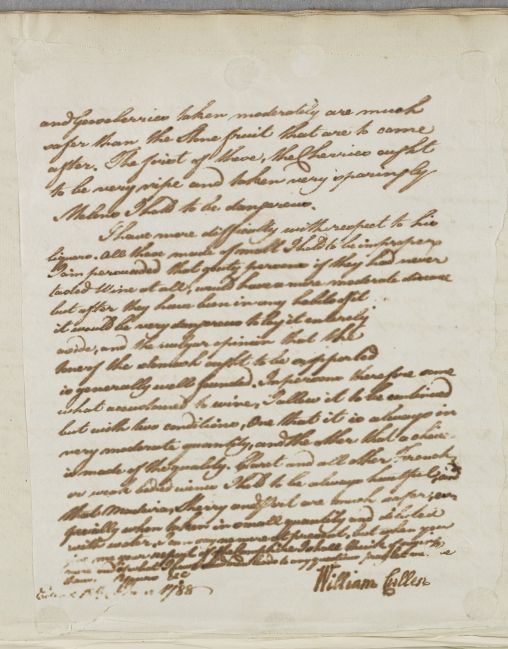 and Gooseberries taken moderately are much
safer than the Stone fruit that are to come
after. The first of these, the Cherries ought
to be very ripe and taken very sparingly
Melons I hold to be dangerous.
I have more difficulty with respect to his
liquors. All those made of small I hold to be improper
I am persuaded that gouty persons if they had never
tasted Wine at all, would have a more moderate disease
but after they have been in any habit of it
it would be very dangerous to lay it entirely
aside, and the vulgar opinion that the
tone of the stomach ought to be supported
is generally well founded. In persons therefore some
what accustomed to wine, I allow it to be continued
but with two conditions, One that it is always in
very moderate quantity, and the other that a choice
is made of the quality. Claret and all other French
or weak bodied wines I hold to be always hurtful, and
that Madeira, Sherry and Port are much safer, es
pecially when taken in small quantity and diluted
with water. I can say no more at present, but when you
give me
1788
William Cullen